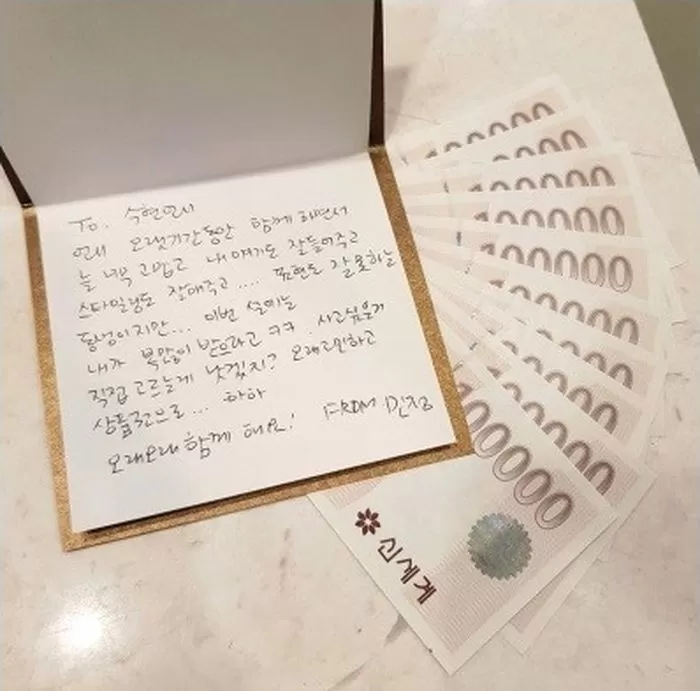 To. 숙현언니
언니 오랫기간동안 함께하면서
늘 너무 고맙고 내 얘기도 잘들어주고
스타일링도 잘해주고.... 표현도 잘못하는
동생이지만... 이번 설에는
내가 복많이 받으라고 ㅋㅋ. 사고싶은거
직접 고르는게 낫겠지? 오래고민하고
상품권으로... 하하
오래오래 함께 해요!
FROM 민정
100000
100000
100000
100000
100000
100000
100000
100000
100000
100000
신세계